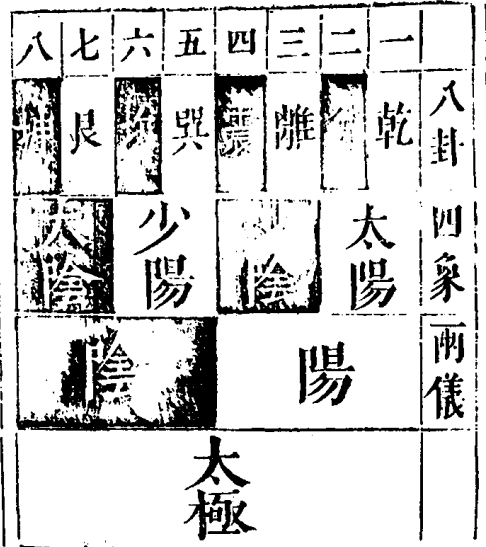 一 二 三 四 五 六 七 八
八卦 乾 離 震 巽 坎 艮 坤
四象 太陽 陰 少陽 太陰
兩儀 陽 陰
太極